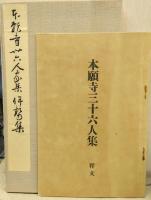 本願寺卅六人家集 伊勢集
本願寺三十六人集
釋文